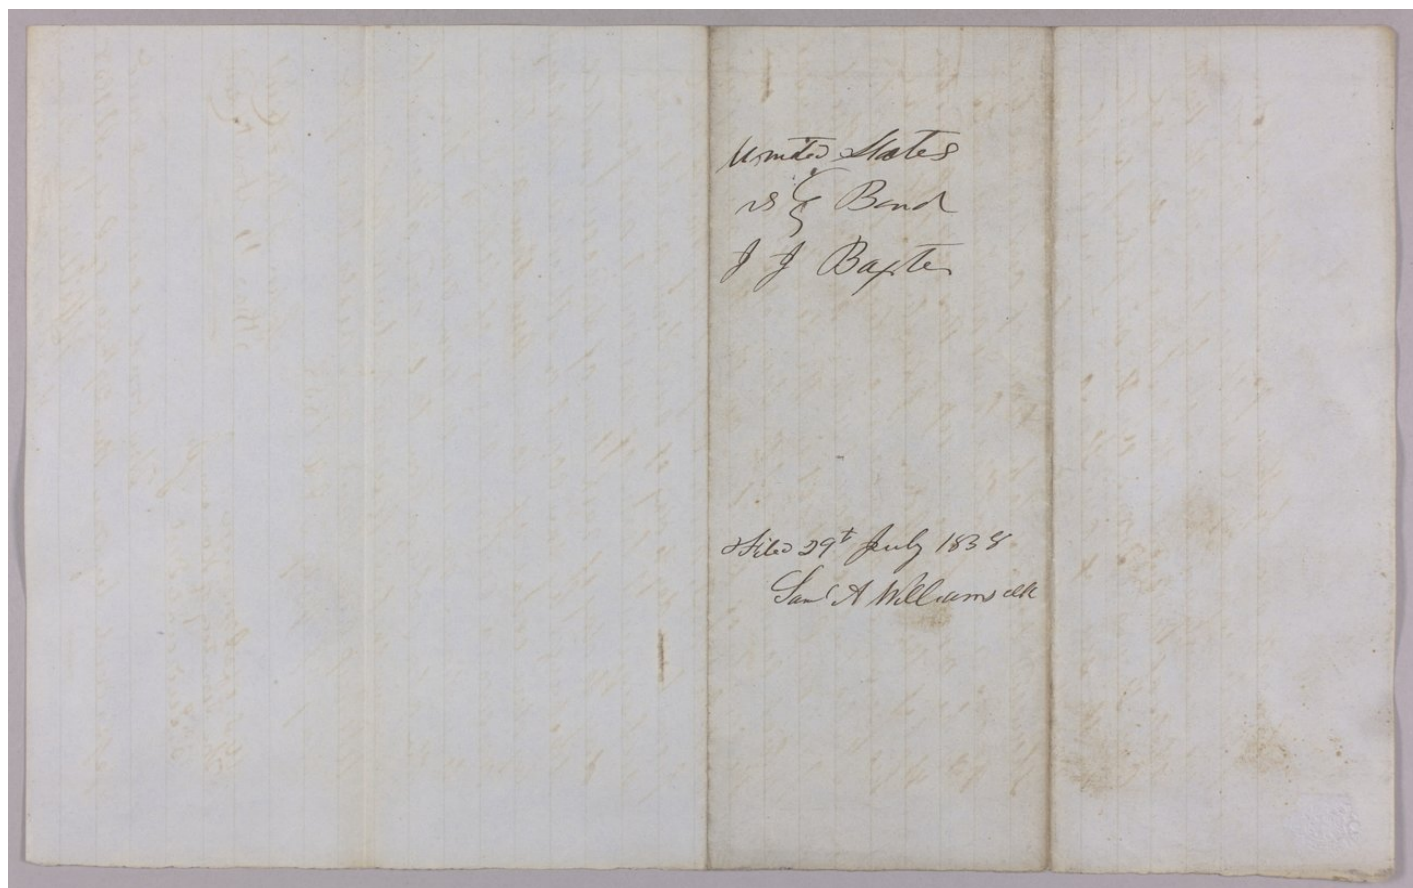 United States
vs } Bond
J J Baxter
Filed 29t July 1838
Saml A Williams clk